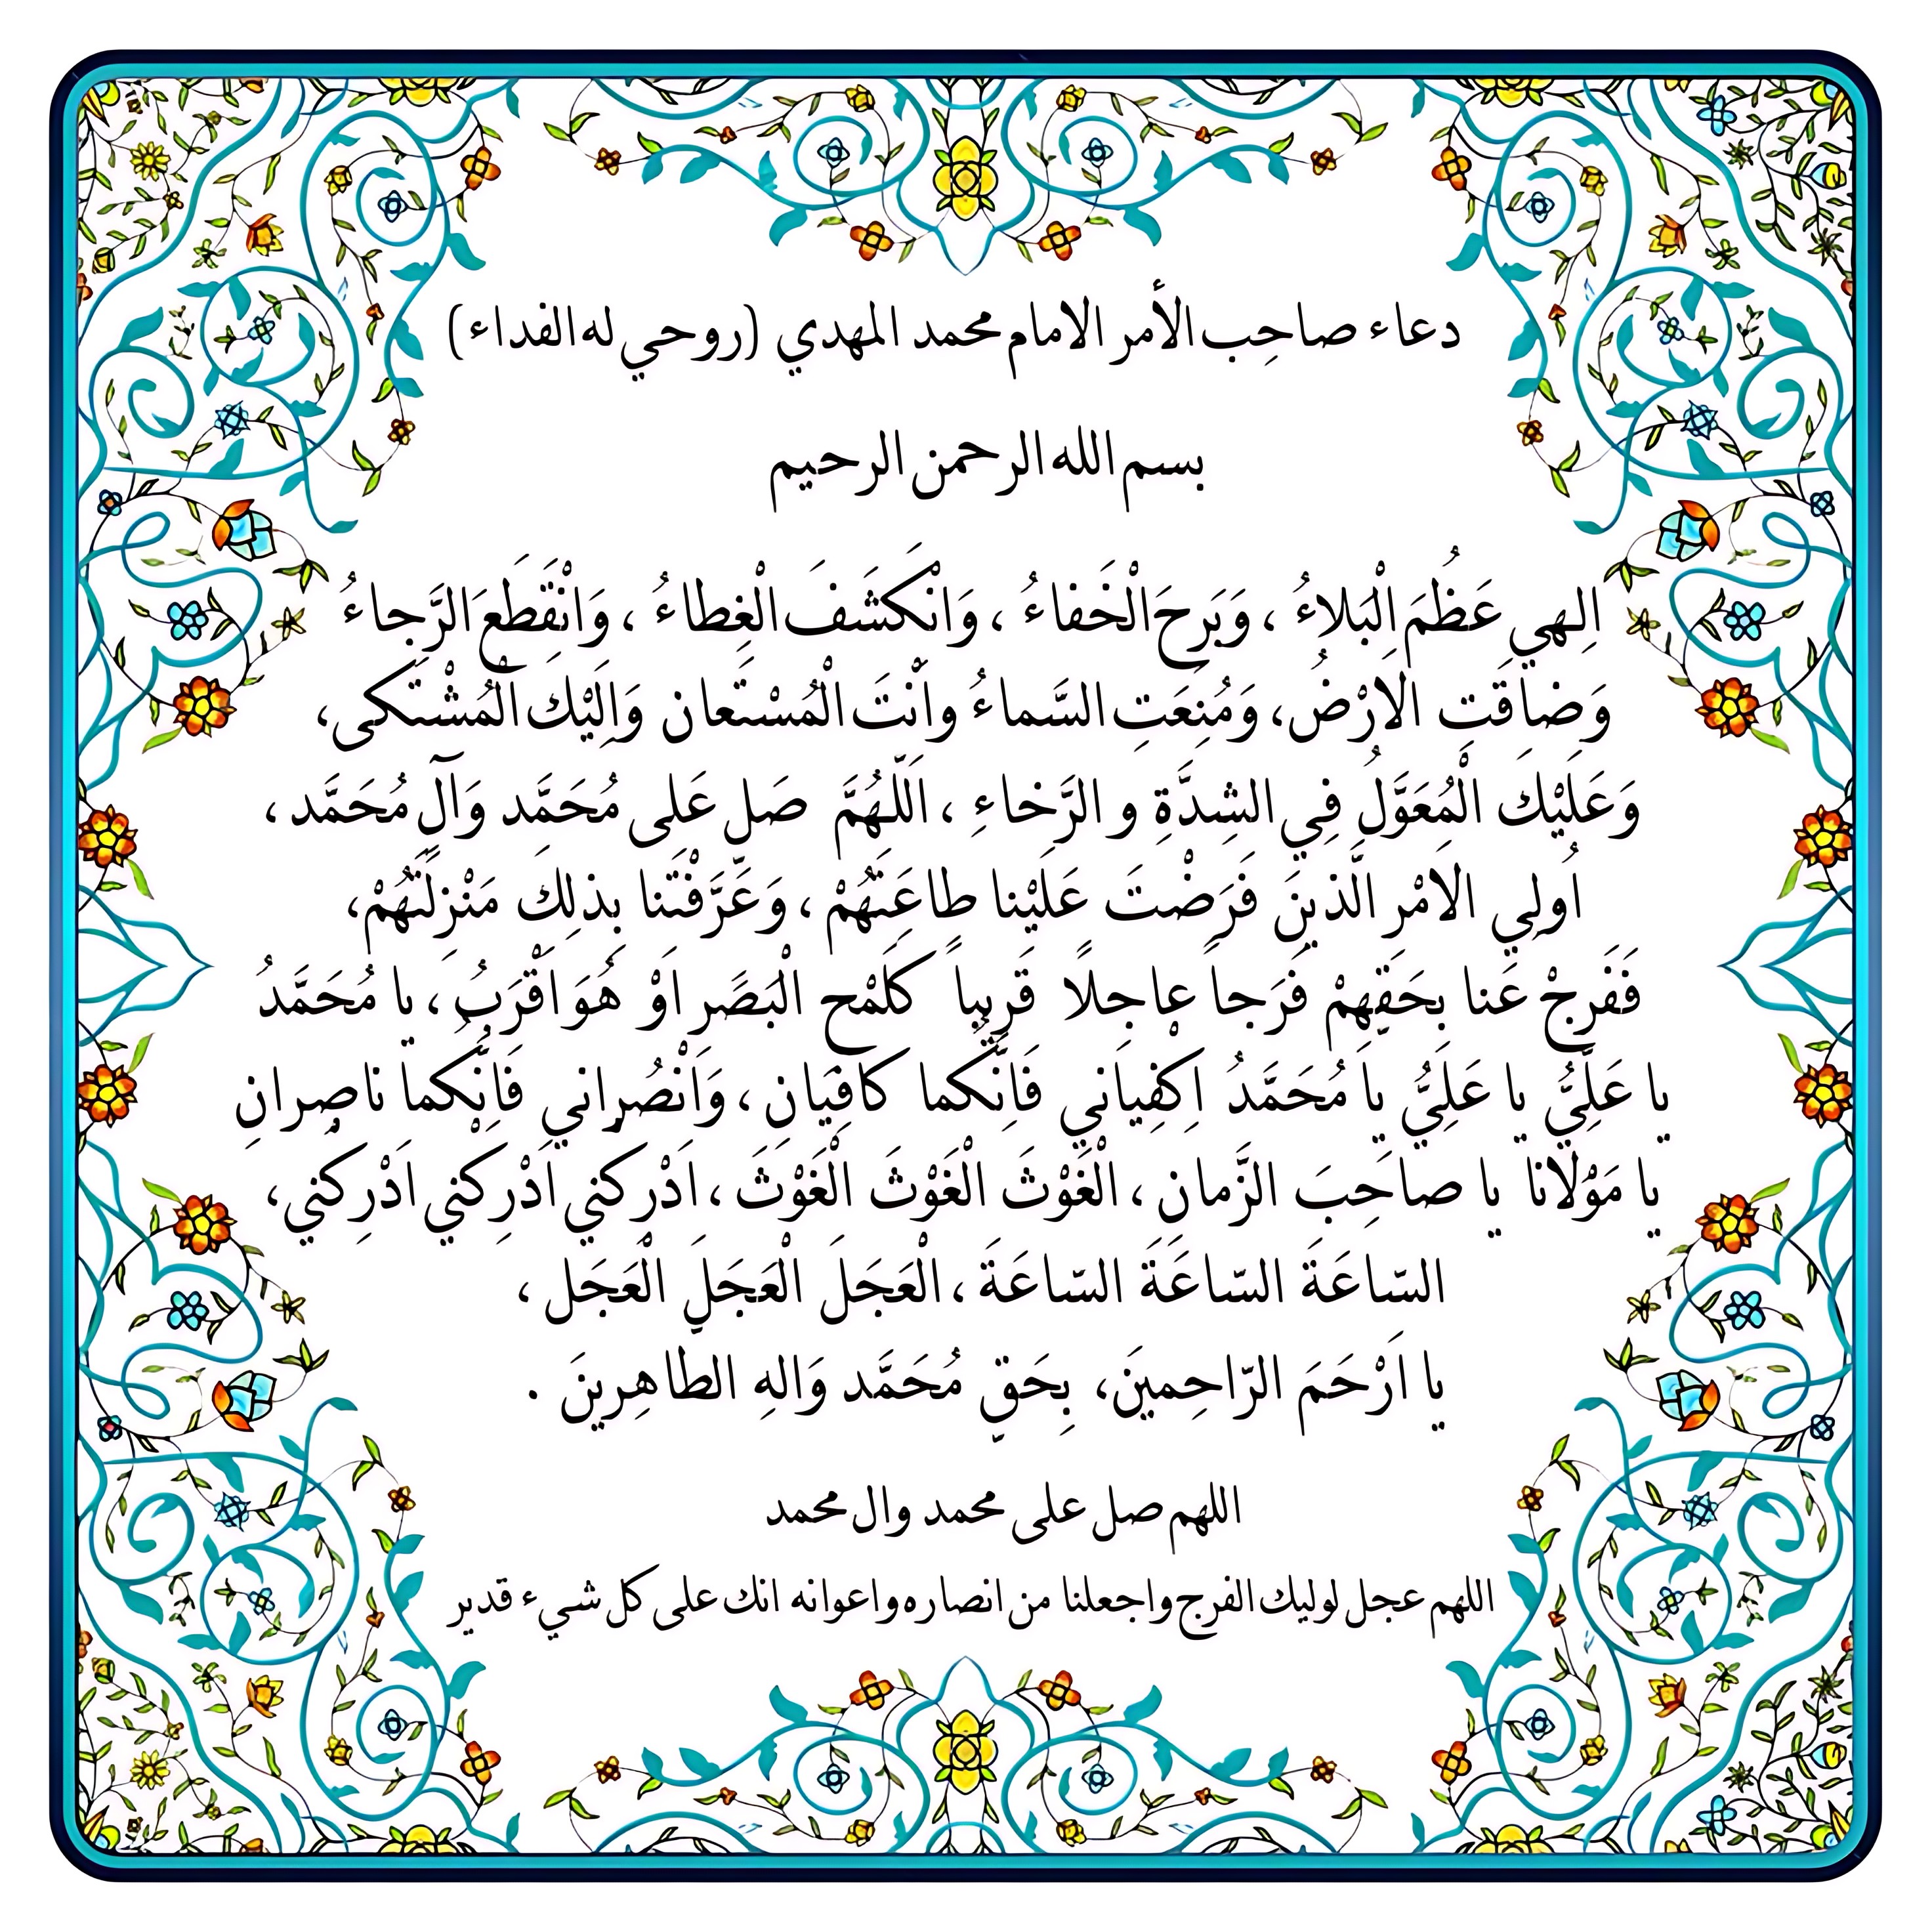 دعاء صاحِب الأمر الامام محمد المهدي (روحي له الفداء)
بسم الله الرحمن الرحيم
اِلهي عَظُمَ الْبَلاءُ ، وَبَرِحَ الْخَفاءُ ، وَانْكَشَفَ الْغِطاءُ ، وَانْقَطَعَ الرَّجاءُ
وَضاقَتِ الاَرْضُ، وَمُنِعَتِ السَّماءُ واَنْتَ الْمُسْتَعان وَاِلَيْكَ الْمُشْتَكى،
وَعَلَيْكَ الْمُعَوَّلُ فِي الشِدَّةِ و الرَّخاءِ ، اَللّهُمَّ صَلِ عَلى مُحَمَّد وَآلِ مُحَمَّد ،
اُولِي الاَمْرِ الَّذينَ فَرَضْتَ عَلَيْنا طاعَتَهُمْ ، وَعَرَّفْتَنا بِذلِكَ مَنْزِلَتَهُمْ،
فَفَرِجْ عَنا بِحَقِهِمْ فَرَجاً عاجِلًا قَرِيباً كَلَمْحِ الْبَصَرِ اَوْ هُوَ اَقْرَبُ ، يا مُحَمَّدُ
يا عَلِيُّ يا عَلِيُّ يا مُحَمَّدُ اِكْفِياني فَاِنَّكُما كافِيَانِ ، وَانْصُراني فَاِنَّكُما ناصِرانِ
يا مَوْلانا يا صاحِبَ الزَّمانِ ، الْغَوْثَ الْغَوْثَ الْغَوْثَ ، اَدْرِكْني اَدْرِكْني اَدْرِكْني ،
السّاعَةَ السّاعَةَ السّاعَةَ ، الْعَجَلَ الْعَجَلَ الْعَجَل ،
يا اَرْحَمَ الرّاحِمينَ، بِحَقِّ مُحَمَّد وَالِهِ الطّاهِرينَ .
اللهم صل على محمد وال محمد
اللهم عجل لوليك الفرج واجعلنا من انصاره واعوانه انك على كل شيء قدير